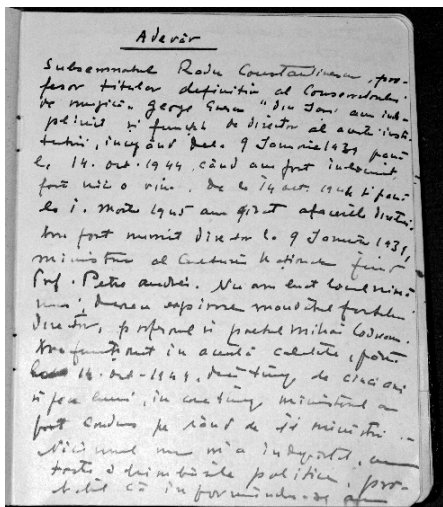 Adevăr
Subsemnatul Radu Constantinescu, pro-
fesor titular definitiv al Conservatorului
de muzică „George Enescu" din Iași am înde-
plinit și funcția de director al acestei insti-
tuțiuni, începând dela 9 Ianuarie 1939 până
la 14. oct. 1944, când am fost înlocuit
fără nici o vină. De la 14 oct. 1944 și până
la 1. Martie 1945 am girat afacerile direcți
Am fost numit director la 9 Ianuarie 1939,
ministru al Educației Naționale fiind
Prof. Petre Andrei. Nu am luat locul nimă
nui; deoarece expirase mandatul fostului
Director, profesorul și poetul Mihai Codreanu.
Am funcționat în această calitate, până
la 14. oct. 1944, deci timp de cinci ani
și șase luni, în care timp ministerul a
fost condus pe rând de miniștri.
Nici unul nu m'a îndepărtat, cu
toate schimbările politice, pro-
babil că informându-se